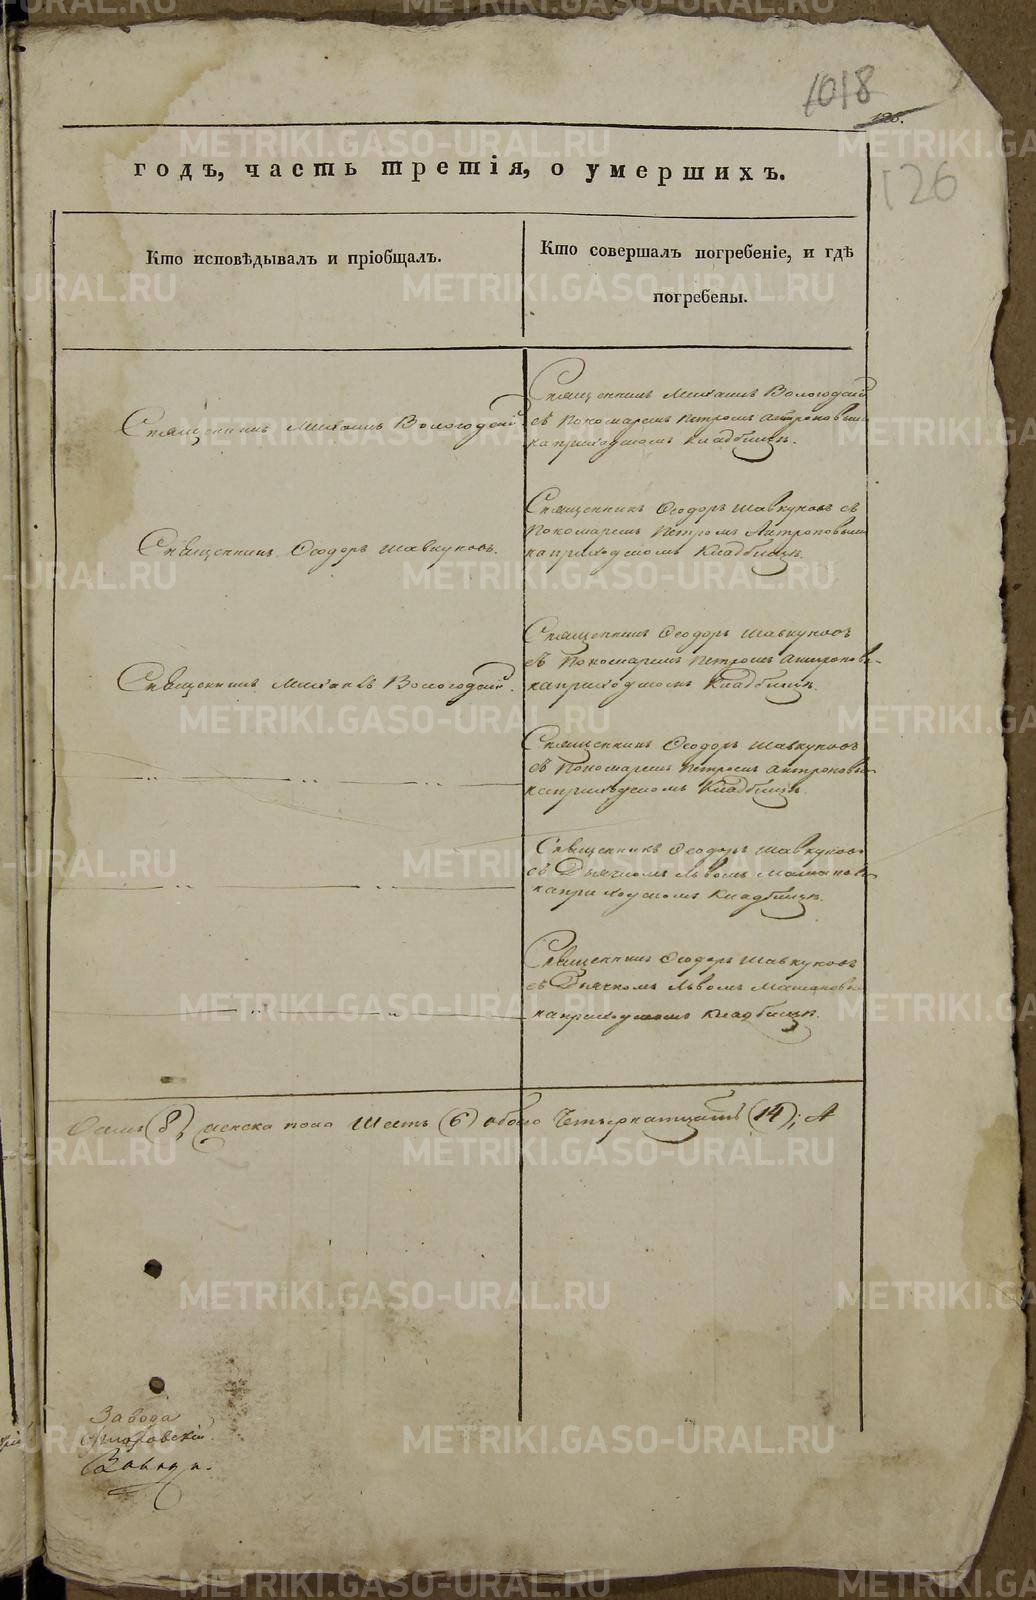 1018
126.
126
годъ, часть третія, о умершихъ.
Кто исповѣдывалъ и пріобщалъ.
Кто совершалъ погребеніе, и гдѣ
погребены.
Священникъ Михаилъ Вологодскій
Священникъ Михаилъ Вологодскій
съ Пономаремъ Петромъ Антроповымъ
на приходскомъ Кладбищѣ.
Священникъ Ѳеодоръ Шавкуновъ.
Священникъ Ѳеодоръ Шавкуновъ съ
Пономаремъ Петромъ Антроповымъ
на приходскомъ Кладбищѣ.
Священникъ Михаилъ Вологодскій.
Священникъ Ѳеодоръ Шавкуновъ
съ Пономаремъ Петромъ Антроповы-
на приходскомъ Кладбищѣ.
Священникъ Ѳеодоръ Шавкуновъ
съ Пономаремъ Петромъ Антроповы-
на приходскомъ Кладбищѣ.
Священникъ Ѳеодоръ Шавкуновъ
съ Дьячкомъ Львомъ
на приходскомъ Кладбищѣ.
Священникъ Ѳеодоръ Шавкуновъ
съ Дьячкомъ Львомъ
на приходскомъ Кладбищѣ.
Осмь (8), женска пола Шесть (6) обоего Четырнатцать (14); А
Завода
METRIKI.GASO-URAL.RU